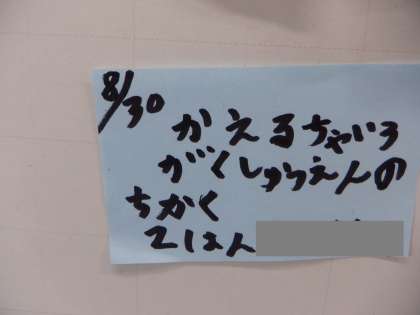 8/30
かえるちゃいろ
がくしゅうえんの
ちかく
2はん